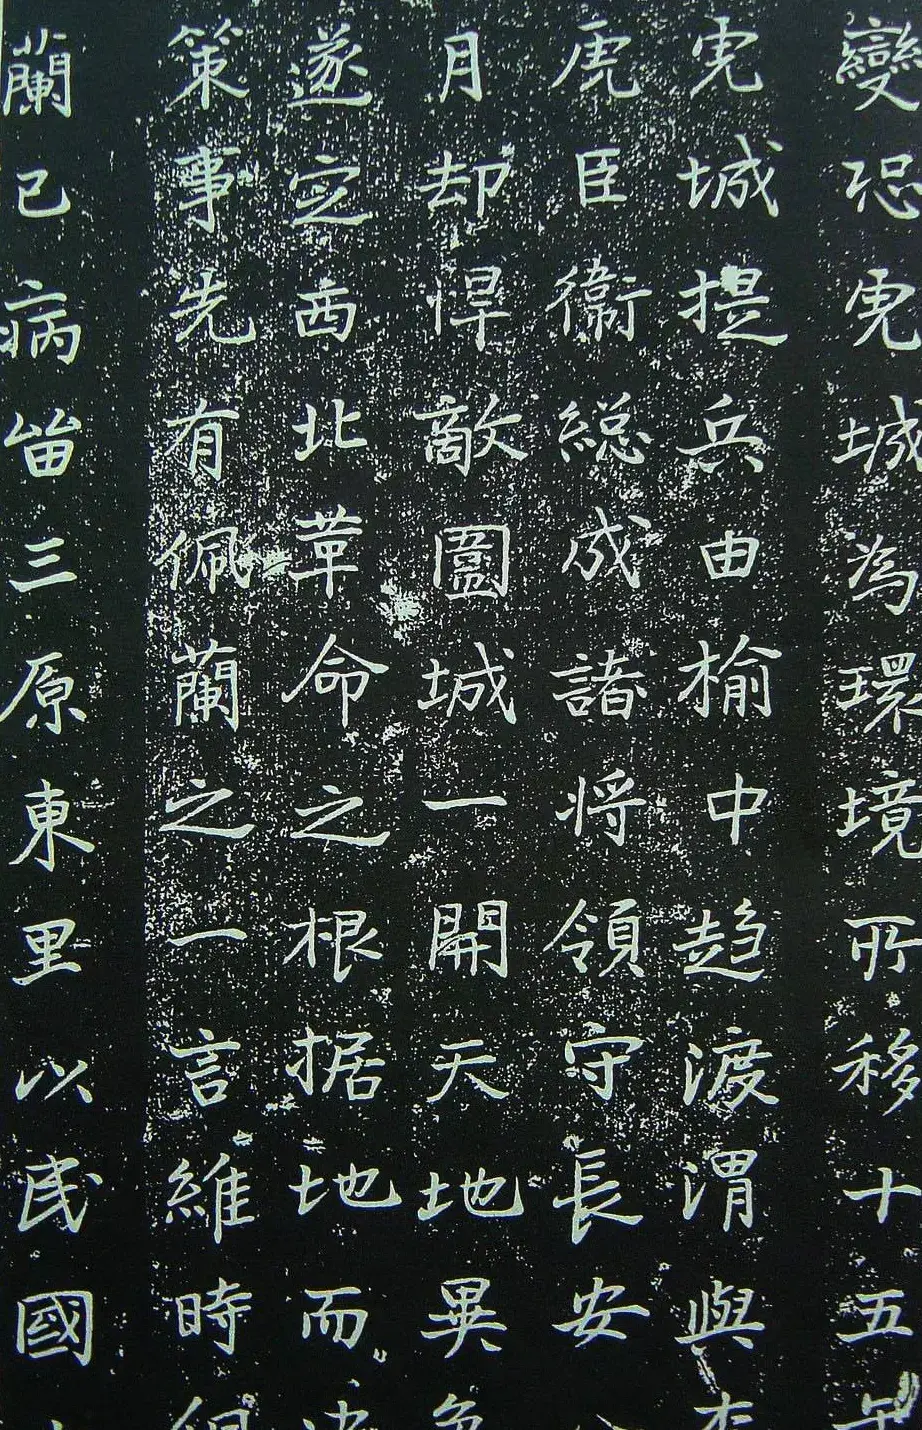 變恐兜城為環境所移十五年
兜城提兵由榆中趋渡渭與李
虎臣衞総成諸将領守長安八
月却悍敵圍城一開天地異色
遂定西北革命之根据地而決
策事先有佩蘭之一言維時佩
蘭已病畄三原東里以民國